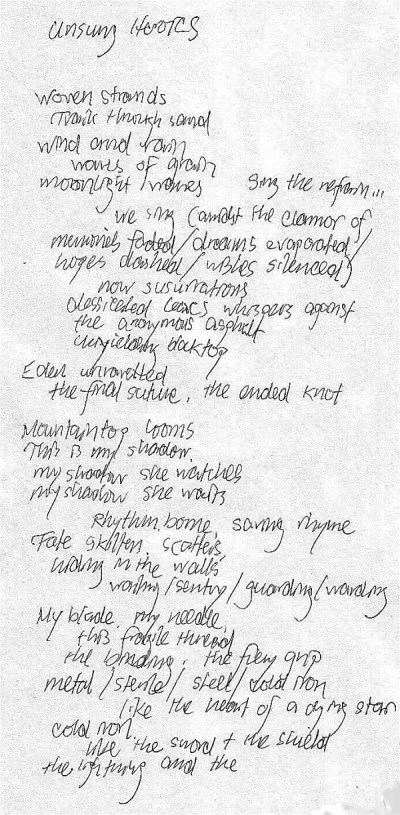 Unsung Heroes
Woven strands
Track through sand
Wind and rain
waves of grain
moonlight waves Sing the refrain...
We sing (amidst the clamor of
memories faded/dreams evaporated/
hopes dashed/wishes silenced)
now susurrations
dessicated leaves whispers against
the anonymous asphalt
unyielding blacktop
Eden unravelled
the final suture, the ended knot
Mountaintop looms
This is my shadow,
my shadow she watches
my shadow she waits
Rhythm borne, saving rhyme
Fate skitters, scatters,
hiding in the walls
waiting/sentry/guarding/warding
My blade, my needle,
this fragile thread
the binding, the fiery grip
metal/sterile/steel/cold iron
like the heart of a dying star
cold iron,
like the sword + the shield
the lightning and the